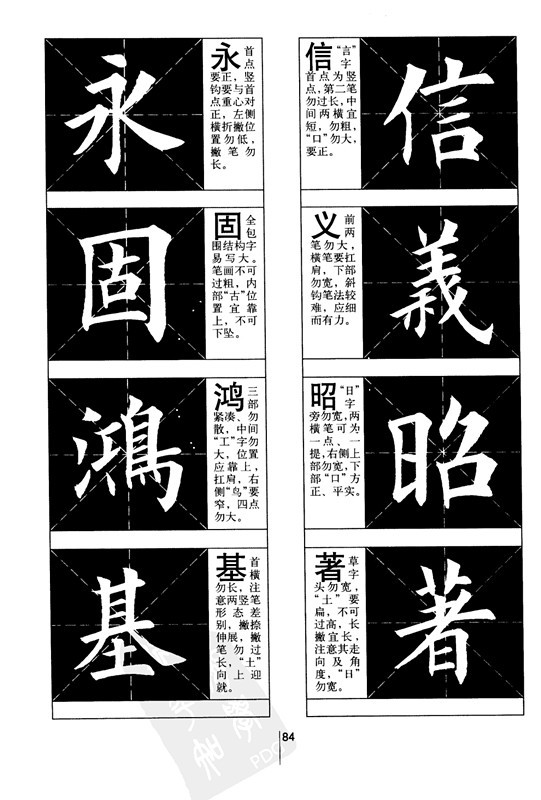 信
信“言”
字
首点为竖
点，第二笔
勿过长，中
间两横宜
短，勿粗，
“口”勿大，
要正。
義
义前
两
笔勿大，
横笔要扛
肩，下部
勿宽，斜
钩笔法较
难，应细
而有力。
昭
昭“日”
字
旁勿宽，两
横笔可为
一点、一
提，右侧上
部勿宽，下
部“口”方
正、平实。
著
著草
字
头勿宽，
“土”要
扁，不可
过高，长
撇宜长，
注意其走
向及角
度，“日”
勿宽。
永
永首
点
要正，竖
钩要与首
点重心对
正，左侧
横折撇位
置勿低，
撇笔勿
长。
固
固全
包
围结构字
易写大。
笔画不可
过粗，内
部“古”位
置宜靠
上，不可
下坠。
鴻
鸿三
部
紧凑、勿
散，中间
“工”字勿
大，位置
应靠上，
扛肩，右
侧“鸟”要
窄，四点
勿大。
基
基首
横
勿长，注
意两竖笔
形态差
别，撇捺
伸展，撇
笔勿过
长，“土”
向上迎
就。
84